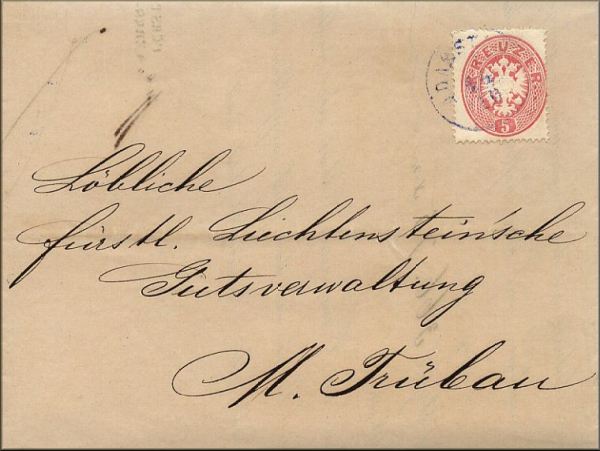 KREUZER
5
Löbliche
fürstl. Liechtenstein'sche
Gutsverwaltung
M. Trübau